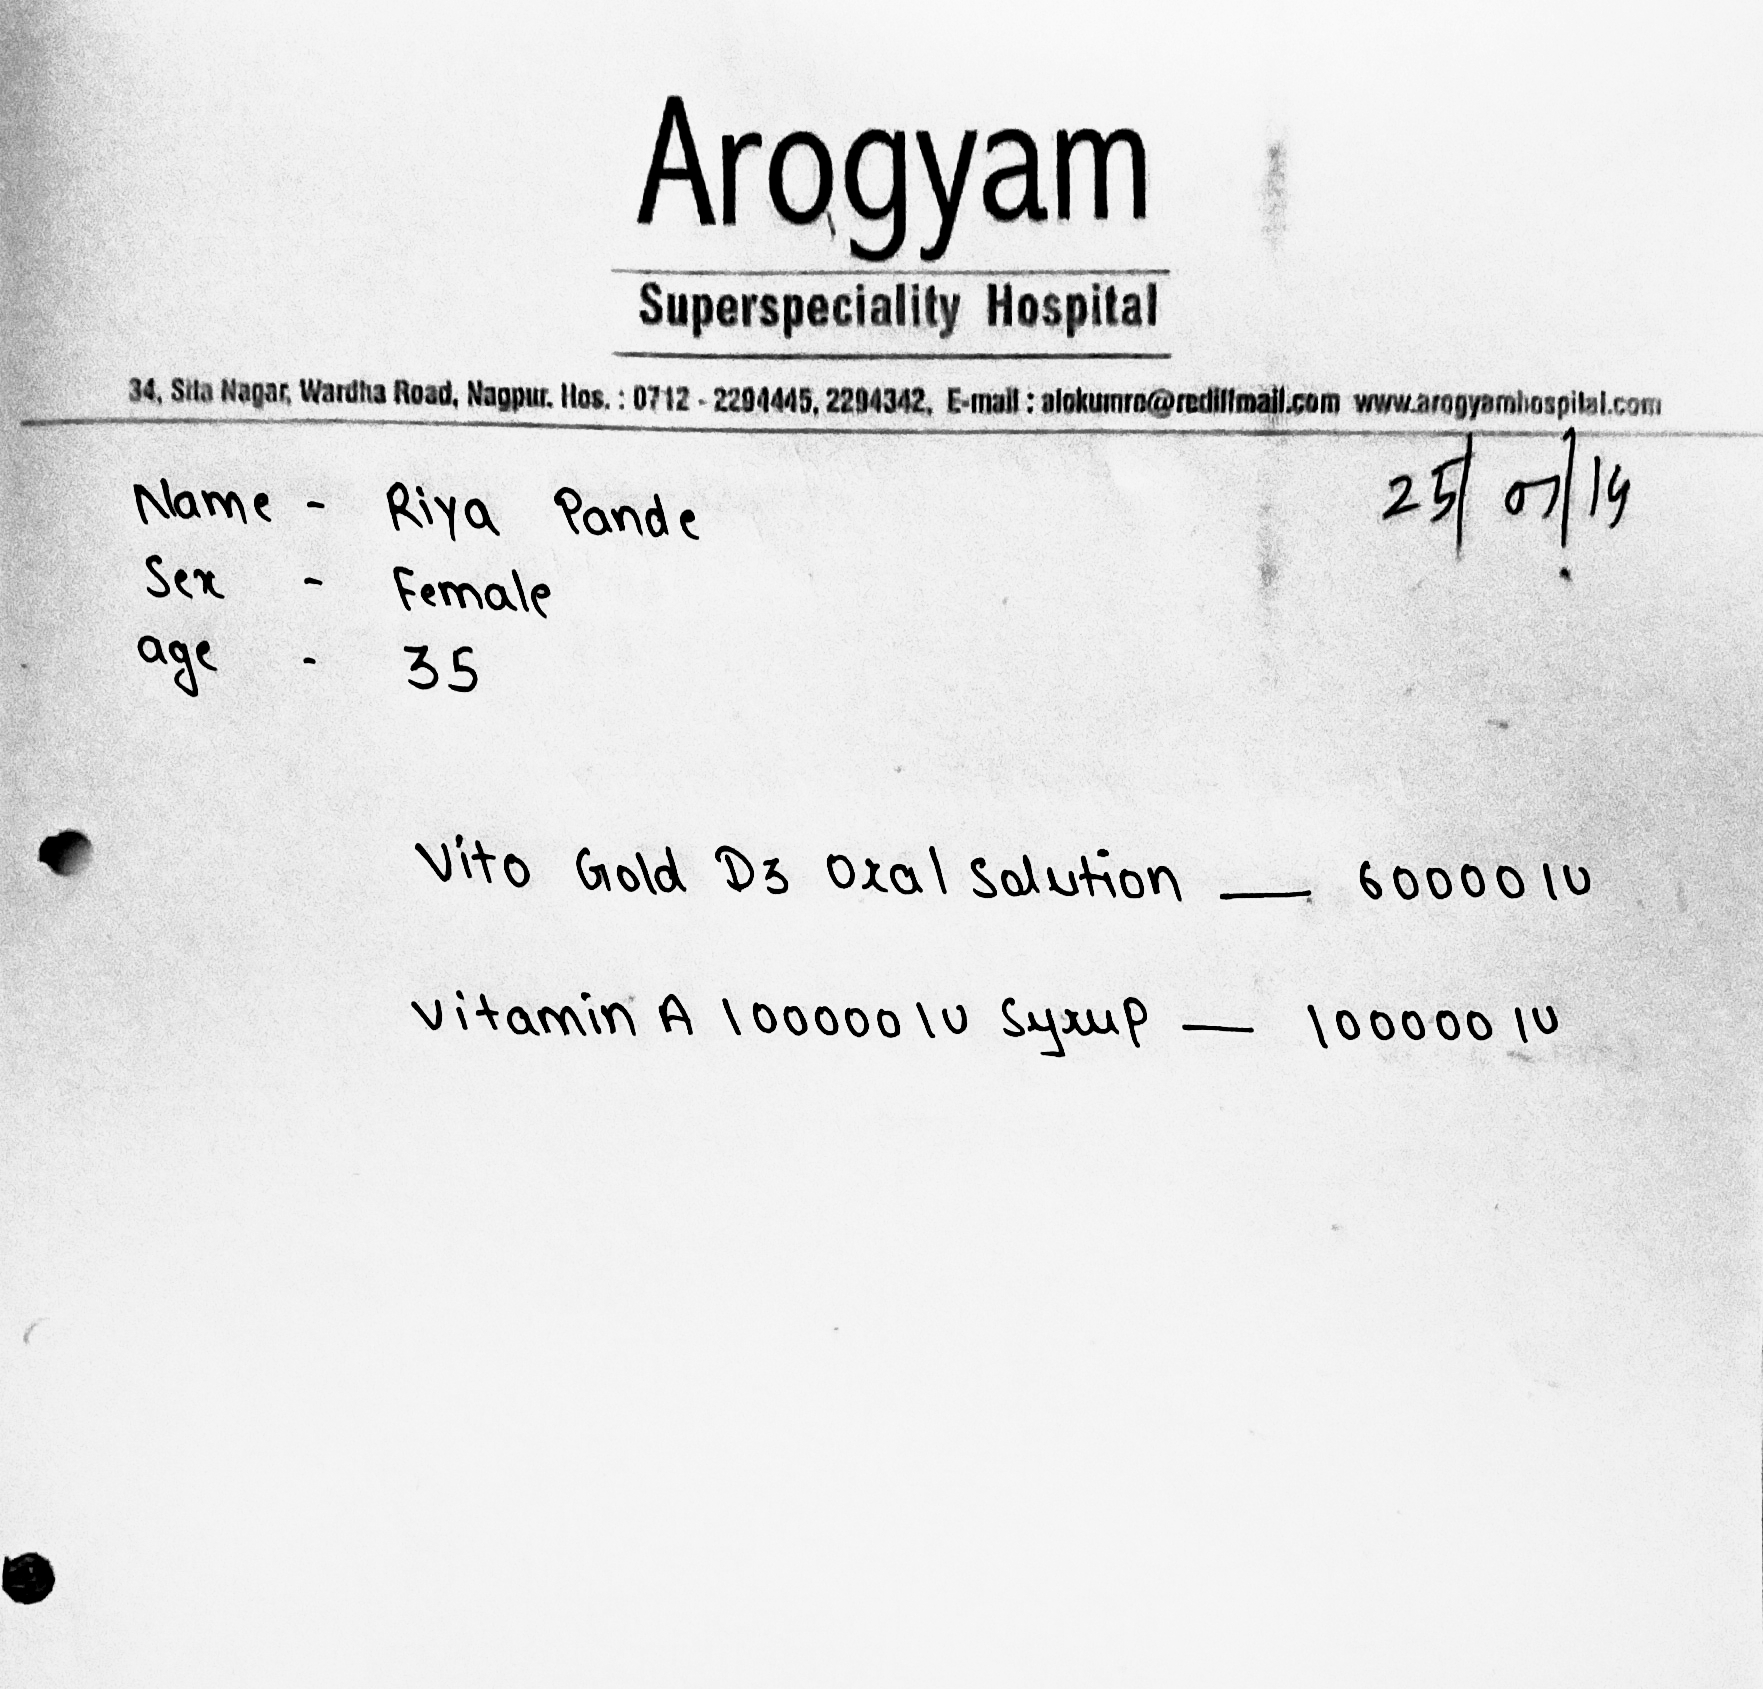 Arogyam
Superspeciality Hospital
34, Sita Nagar, Wardha Road, Nagpur. Hos. : 0712 - 2294445, 2294342, E-mail : alokumre@rediffmail.com www.arogyamhospital.com
25/07/19
Name - Riya Pande
Sex - Female
age - 35
Vito Gold D3 Oral Solution — 60000 IU
Vitamin A 100000 IU Syrup — 100000 IU